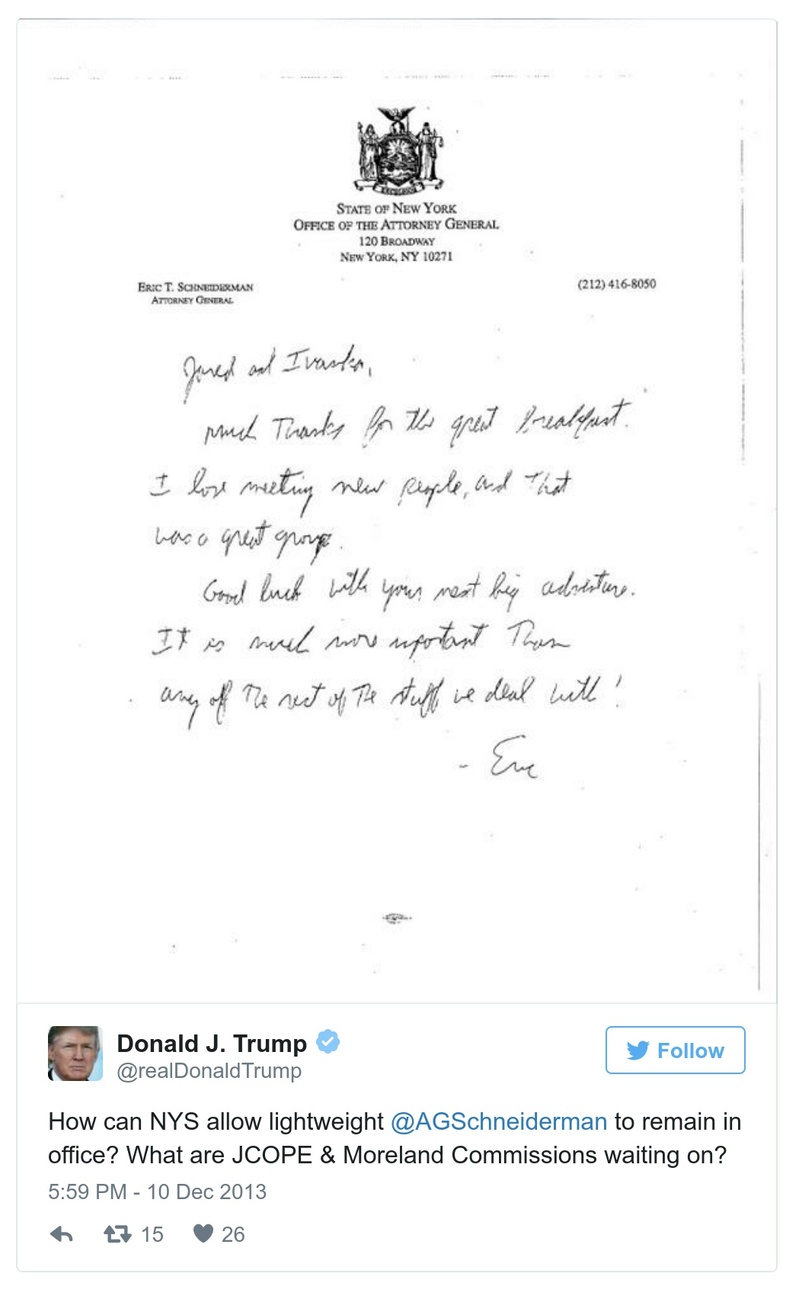 EXCELSIOR
STATE OF NEW YORK
OFFICE OF THE ATTORNEY GENERAL
120 BROADWAY
NEW YORK, NY 10271
ERIC T. SCHNEIDERMAN
ATTORNEY GENERAL
(212) 416-8050
Jared and Ivanka,
much Thanks for the great breakfast.
I love meeting new people, and that
was a great group.
Good luck with your next big adventure.
It is much more important Than
any off The rest of The stuff we deal with!
- Eric
Donald J. Trump
@realDonaldTrump
Follow
How can NYS allow lightweight @AGSchneiderman to remain in
office? What are JCOPE & Moreland Commissions waiting on?
5:59 PM - 10 Dec 2013
15
26